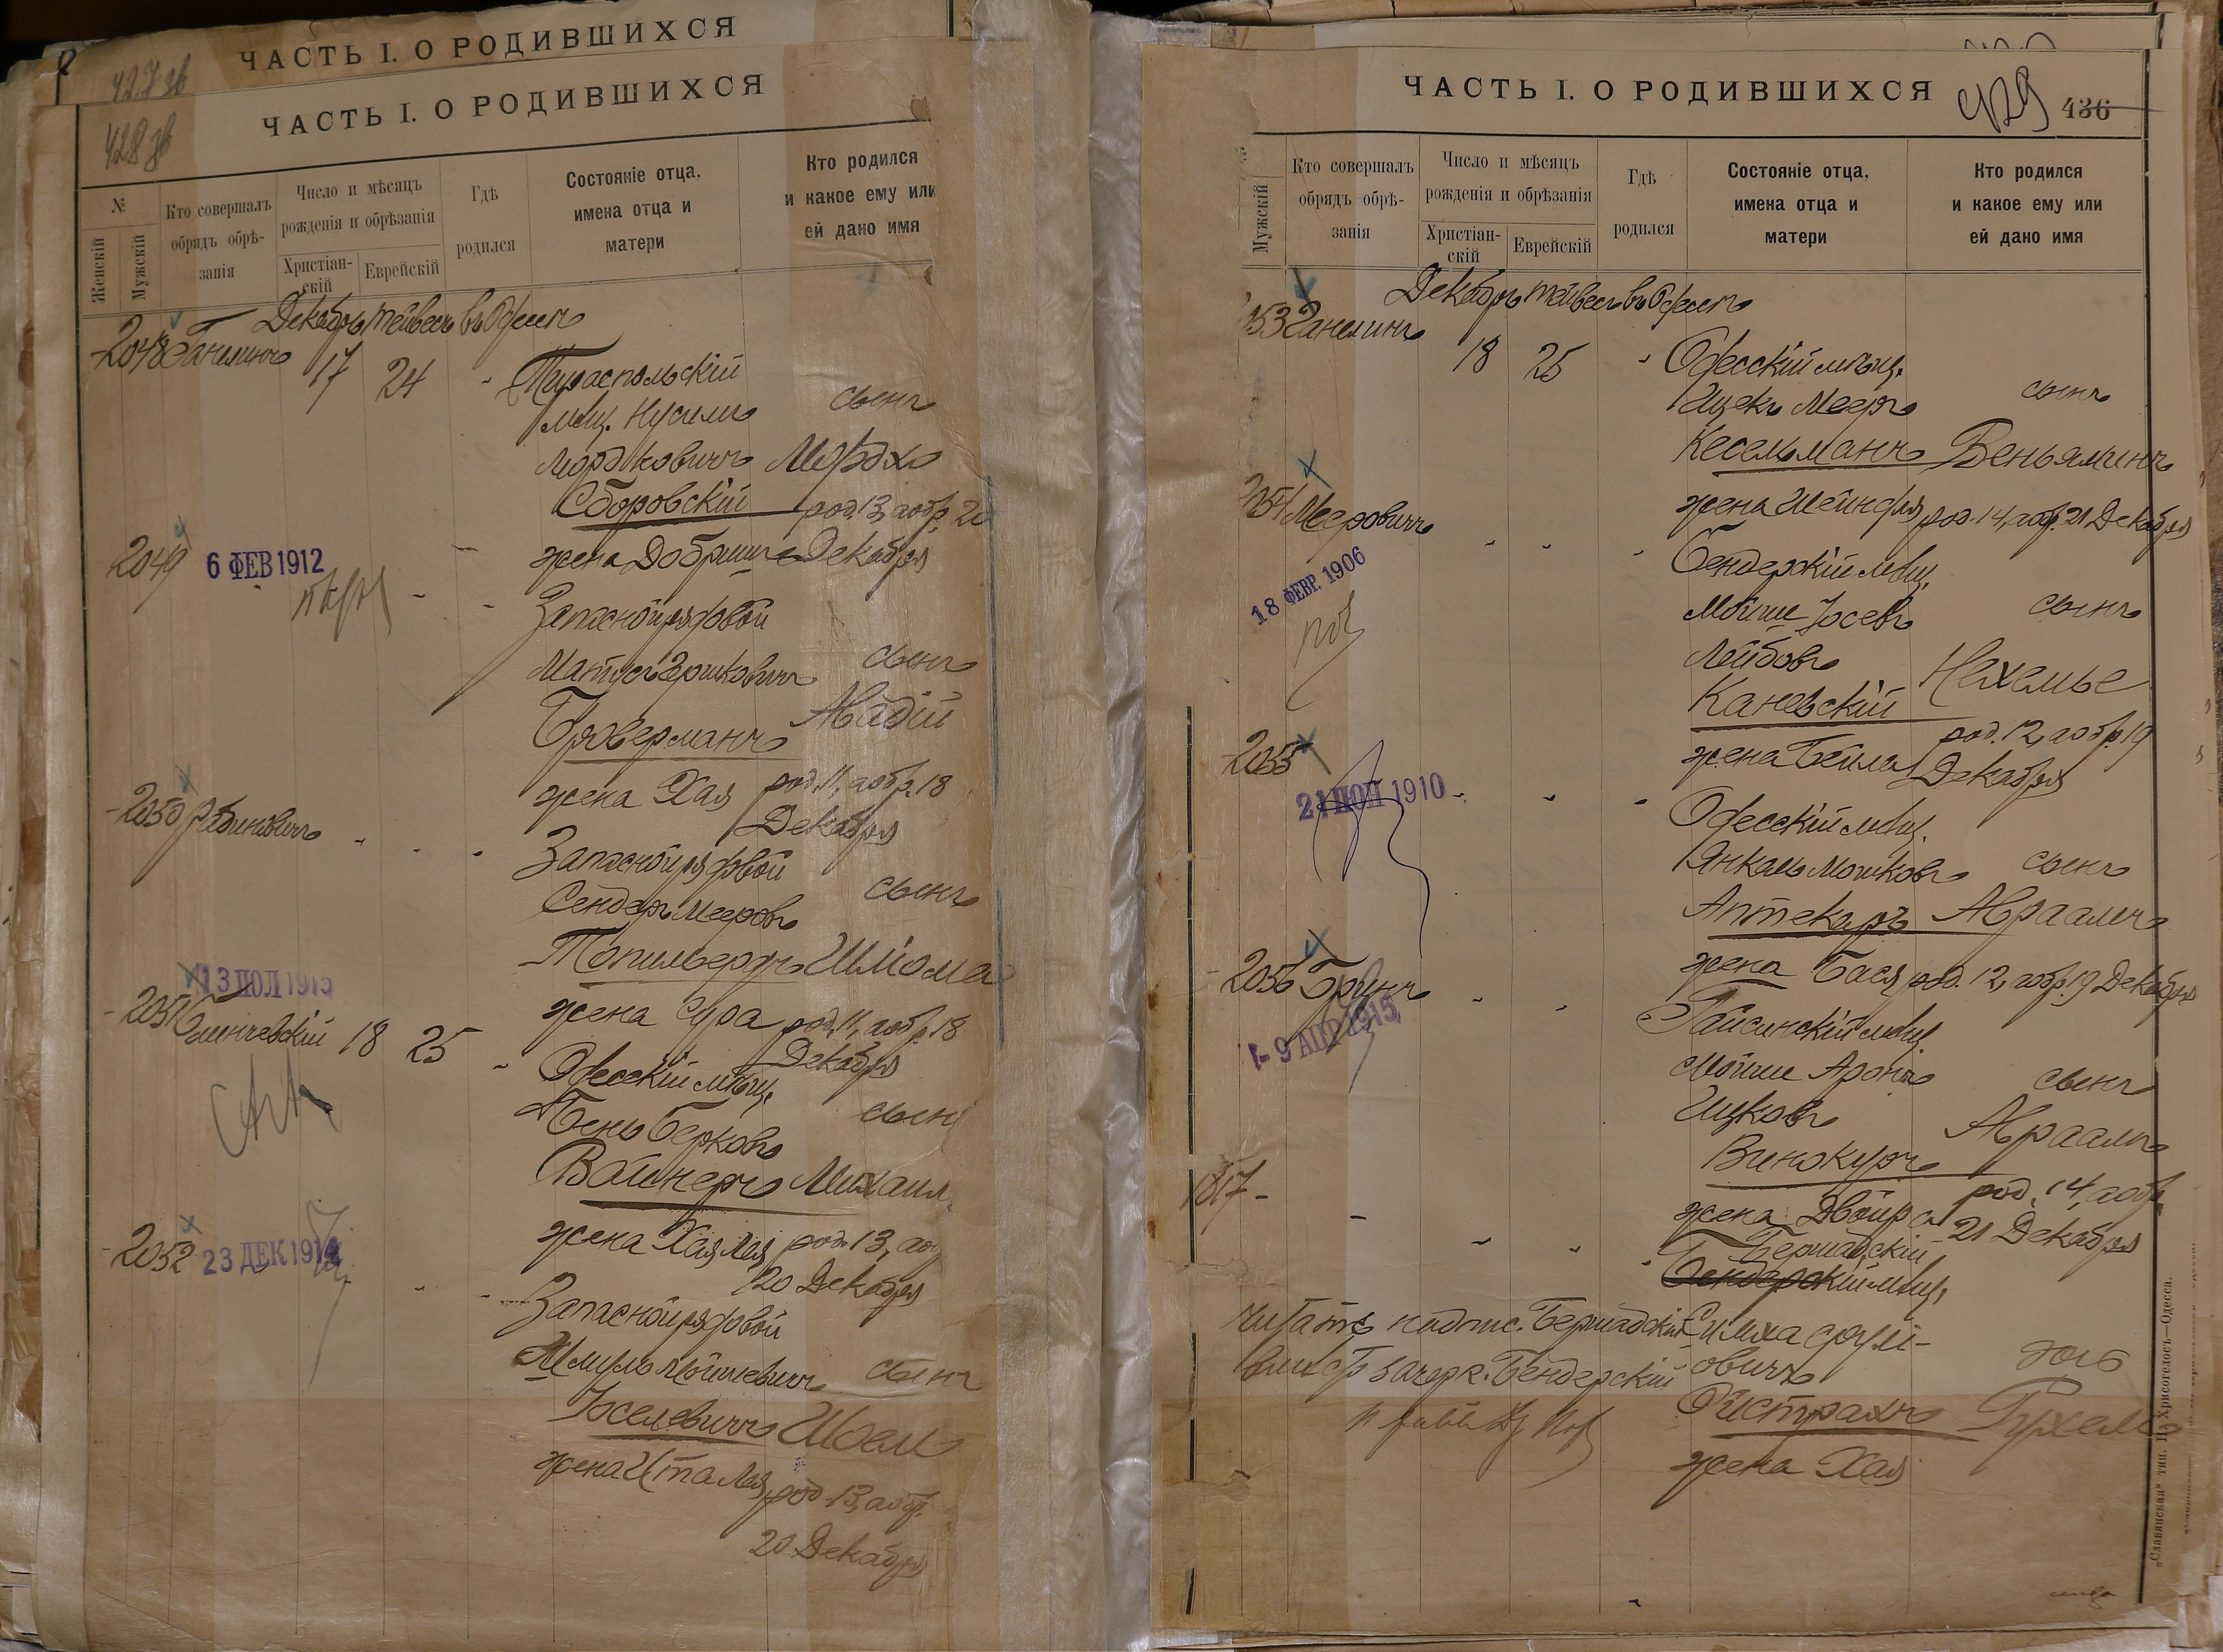 ЧАСТЬ I. О РОДИВШИХСЯ
427 зв
ЧАСТЬ I. О РОДИВШИХСЯ
428 зв
№
Женскій
Мужскій
Кто совершалъ
обрядъ обрѣ-
занія
Число и мѣсяцъ
рожденія и обрѣзанія
Христіан-
скій
Еврейскій
Гдѣ
родился
Состояніе отца,
имена отца и
матери
Кто родился
и какое ему или
ей дано имя
Декабрь тейвесъ въ Одессѣ
2048 Ганелинъ 17 24 " Тираспольскій
мѣщ. Нусимъ сынъ
Мордковичъ Мордхо
Сборовскій род. 13, а обр. 20
жена Добрыш Декабря
2049 6 ФЕВ 1912 " "
Запасной рядовой
Матусъ Гершковичъ сынъ
Броверманъ Авадій
жена Хая род. 11, а обр. 18
Декабря
2050 Рабиновичъ " " "
Запасной рядовой
Сендеръ Мееровъ сынъ
Топильбердъ Шлёма
жена Сура род. 11, а обр. 18
Декабря
13 ПОЛ 1915
2051 18 25 "
Одесскій мѣщ.
Бень Берковъ сынъ
Вайнеръ Михаил
жена Хая Лея род. 13, а
20 Декабря
2052 23 ДЕК " "
Запасной рядовой
Шмуль Мошкевичъ сынъ
Іоселевичъ Шоел
жена Ита Лая род. 13, а обр.
20 Декабря
ЧАСТЬ I. О РОДИВШИХСЯ
429 436
Мужскій
Кто совершалъ
обрядъ обрѣ-
занія
Число и мѣсяцъ
рожденія и обрѣзанія
Христіан-
скій
Еврейскій
Гдѣ
родился
Состояніе отца,
имена отца и
матери
Кто родился
и какое ему или
ей дано имя
Декабрь тейвесъ въ Одессѣ
053 Ганелинъ 18 25 " Одесскій мѣщ.
Ицекъ Мееръ сынъ
Кесельманъ Беньяминъ
жена Шейндля род. 14, а обр. 21 Декабря
2054 Мееровичъ " " "
Бендерскій мѣщ.
18 ФЕВР. 1906
Мойше Іосевъ сынъ
Лейбовъ Нехемье
Каневскій
род. 12, а обр. 19
жена Бейла Декабря
2055
21 ПОЛ 1910 " " "
Одесскій мѣщ.
Янкель Мошковъ сынъ
Аптекарь Авраамъ
жена Бася род. 12, а обр. 19 Декабря
2056 Бринъ " " "
- 9 АПР 1915
Гайсинскій мѣщ.
Мойше Аронъ сынъ
Ицковъ Авраамъ
Винокуръ
род. 14, а обр.
жена Двойра 21 Декабря
1817 - " " "
Бершадскій
Бендерскій мѣщ.
читать надпис. Бершадскій Симха Срулі-
вмѣсто зачерк. Бендерскій овичъ дочь
Ойстрахъ Рухель
жена Хая
„Славянская“ тип. Н. Хрисогелосъ—Одесса.